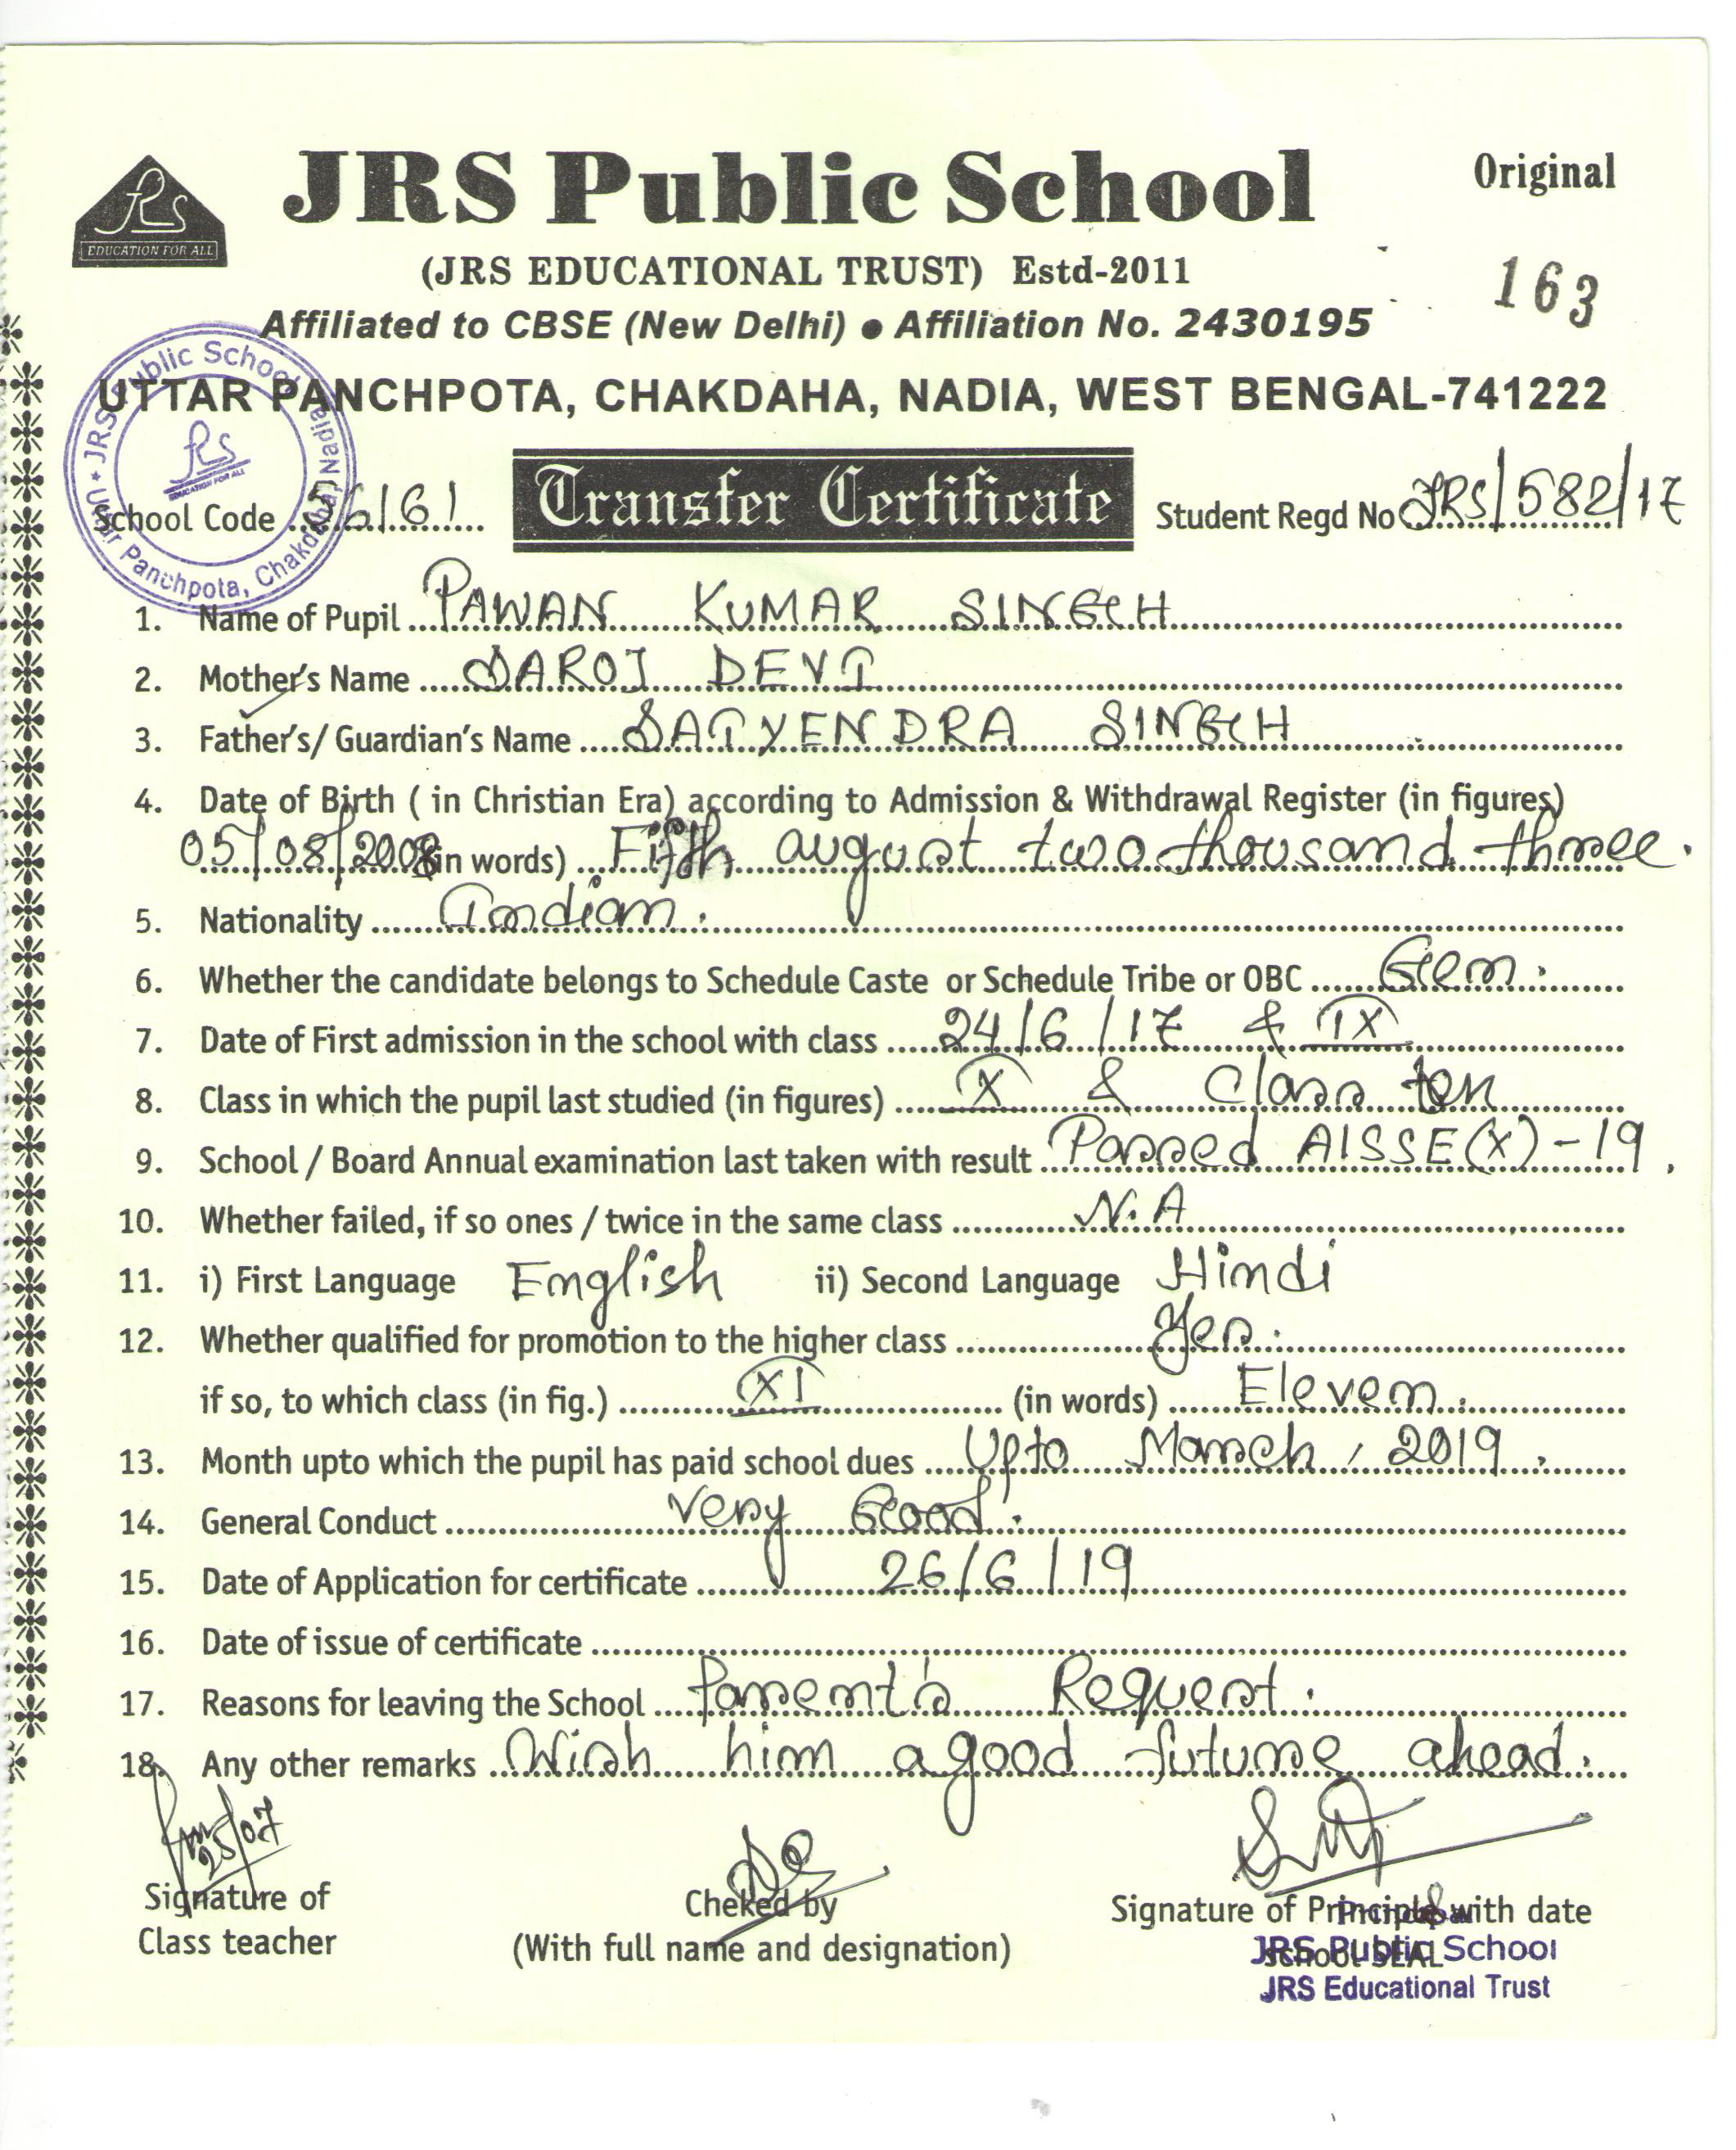 JRS Public School
Original
JRS
EDUCATION FOR ALL
(JRS EDUCATIONAL TRUST) Estd-2011
163
Affiliated to CBSE (New Delhi) ● Affiliation No. 2430195
UTTAR PANCHPOTA, CHAKDAHA, NADIA, WEST BENGAL-741222
JRS Public School
Uttar Panchpota, Chakdaha, Nadia
JRS
EDUCATION FOR ALL
School Code
Transfer Certificate
Student Regd No JRS/582/17
1. Name of Pupil PAWAN KUMAR SINGH
2. Mother's Name SAROJ DEVI
3. Father's/ Guardian's Name SATYENDRA SINGH
4. Date of Birth ( in Christian Era) according to Admission & Withdrawal Register (in figures)
05/08/ (in words) Fifth august two thousand three.
5. Nationality Indian.
6. Whether the candidate belongs to Schedule Caste or Schedule Tribe or OBC Gen.
7. Date of First admission in the school with class 24/6/17 & IX
8. Class in which the pupil last studied (in figures) X & Class ten
9. School / Board Annual examination last taken with result Passed AISSE(X)-19.
10. Whether failed, if so ones / twice in the same class N.A
11. i) First Language English ii) Second Language Hindi
12. Whether qualified for promotion to the higher class Yes.
if so, to which class (in fig.) XI (in words) Eleven.
13. Month upto which the pupil has paid school dues Upto March, 2019.
14. General Conduct Very Good.
15. Date of Application for certificate 26/6/19
16. Date of issue of certificate
17. Reasons for leaving the School Parent's Request.
18. Any other remarks Wish him a good future ahead.
25/07
Signature of
Class teacher
Cheked by
(With full name and designation)
Signature of Principle with date
school SEAL
Principal
JRS Public School
JRS Educational Trust